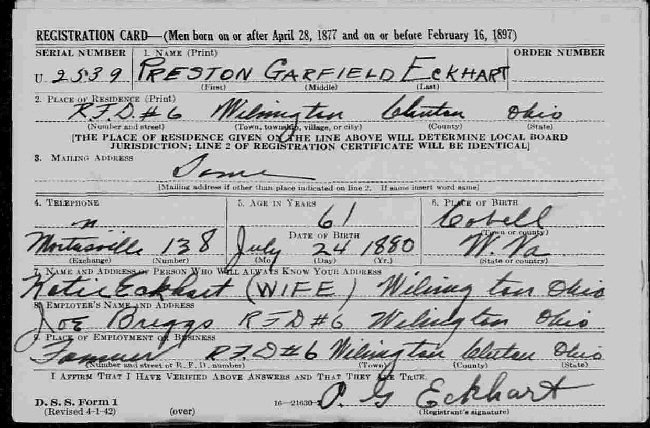 REGISTRATION CARD—(Men born on or after April 28, 1877 and on or before February 16, 1897)
SERIAL NUMBER 1. NAME (Print) ORDER NUMBER
U 2539 PRESTON GARFIELD ECKHART
(First) (Middle) (Last)
2. PLACE OF RESIDENCE (Print)
R.F.D. #6 Wilmington Clinton Ohio
(Number and street) (Town, township, village, or city) (County) (State)
[THE PLACE OF RESIDENCE GIVEN ON THE LINE ABOVE WILL DETERMINE LOCAL BOARD
JURISDICTION; LINE 2 OF REGISTRATION CERTIFICATE WILL BE IDENTICAL]
3. MAILING ADDRESS
Same
[Mailing address if other than place indicated on line 2. If same insert word same]
4. TELEPHONE 5. AGE IN YEARS 6. PLACE OF BIRTH
61
DATE OF BIRTH (Town or county)
138 July 24 1880 W. Va
(Exchange) (Number) (Mo.) (Day) (Yr.) (State or country)
7. NAME AND ADDRESS OF PERSON WHO WILL ALWAYS KNOW YOUR ADDRESS
Katie Eckhart (WIFE) Wilmington Ohio
8. EMPLOYER'S NAME AND ADDRESS
Joe Briggs RFD #6 Wilmington Ohio
9. PLACE OF EMPLOYMENT OR BUSINESS
R.F.D #6 Wilmington Clinton Ohio
(Number and street or R. F. D. number) (Town) (County) (State)
I AFFIRM THAT I HAVE VERIFIED ABOVE ANSWERS AND THAT THEY ARE TRUE.
P. G Eckhart
D. S. S. Form 1
(Revised 4-1-42) (over) 16—21630-2 (Registrant's signature)